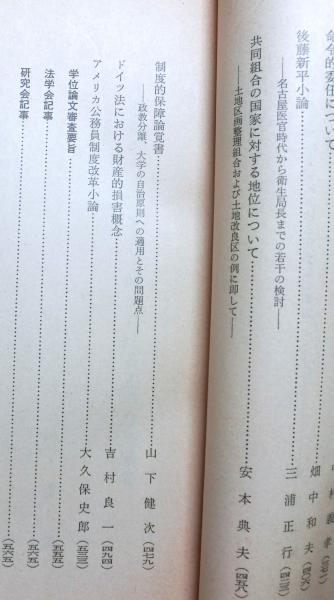 命令的委任について
畑中和夫
後藤新平小論
——名古屋医官時代から衛生局長までの若干の検討——
三浦正行
共同組合の国家に対する地位について
——土地区画整理組合および土地改良区の例に即して——
安本典夫(四五八)
制度的保障論覚書
——政教分離、大学の自治原則への適用とその問題点——
山下健次(四七九)
ドイツ法における財産的損害概念
吉村良一(四九四)
アメリカ公務員制度改革小論
大久保史郎(五三三)
学位論文審査要旨(五六五)
法学会記事(五六五)
研究会記事(五六五)